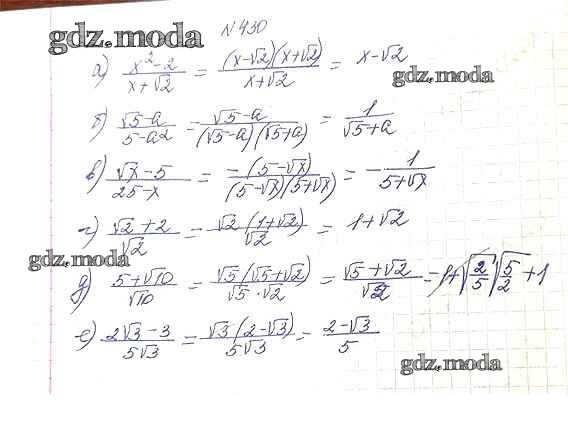 №430
gdz.moda
а) x²-2 / x+√2 = (x-√2)(x+√2) / x+√2 = x-√2
gdz.moda
б) √5-a / 5-a² = √5-a / (√5-a)(√5+a) = 1 / √5+a
в) √x-5 / 25-x = -(5-√x) / (5-√x)(5+√x) = - 1 / 5+√x
г) √2+2 / √2 = √2(1+√2) / √2 = 1+√2
gdz.moda
д) 5+√10 / √10 = √5(√5+√2) / √5·√2 = √5+√2 / √2 = √5/2 + 1
е) 2√3-3 / 5√3 = √3(2-√3) / 5√3 = 2-√3 / 5
gdz.moda